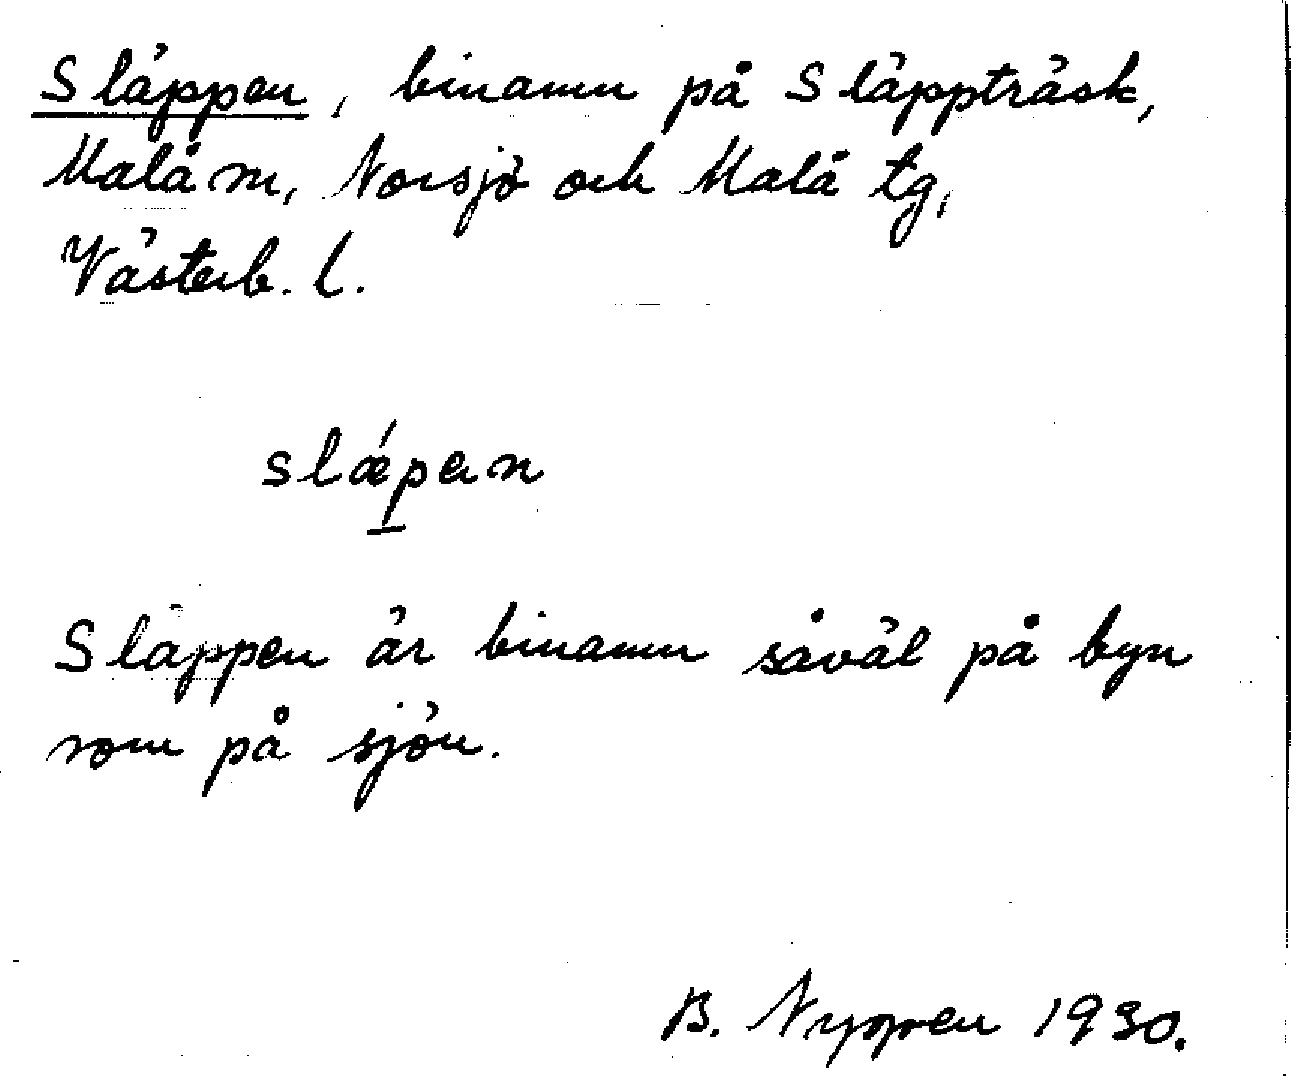 Släppen, binamn på Släppträsk,
Malå sn, Norsjö och Malå tg,
Västerb. l.
slǽpen
Släppen är binamn såväl på byn
som på sjön.
B. Nyppen 1930.